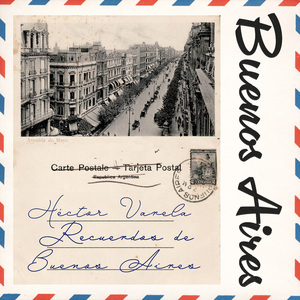 Buenos Aires
Avenida de Mayo
Carte Postale — Tarjeta Postal
Republica Argentina
Héctor Varela
Recuerdos de
Buenos Aires